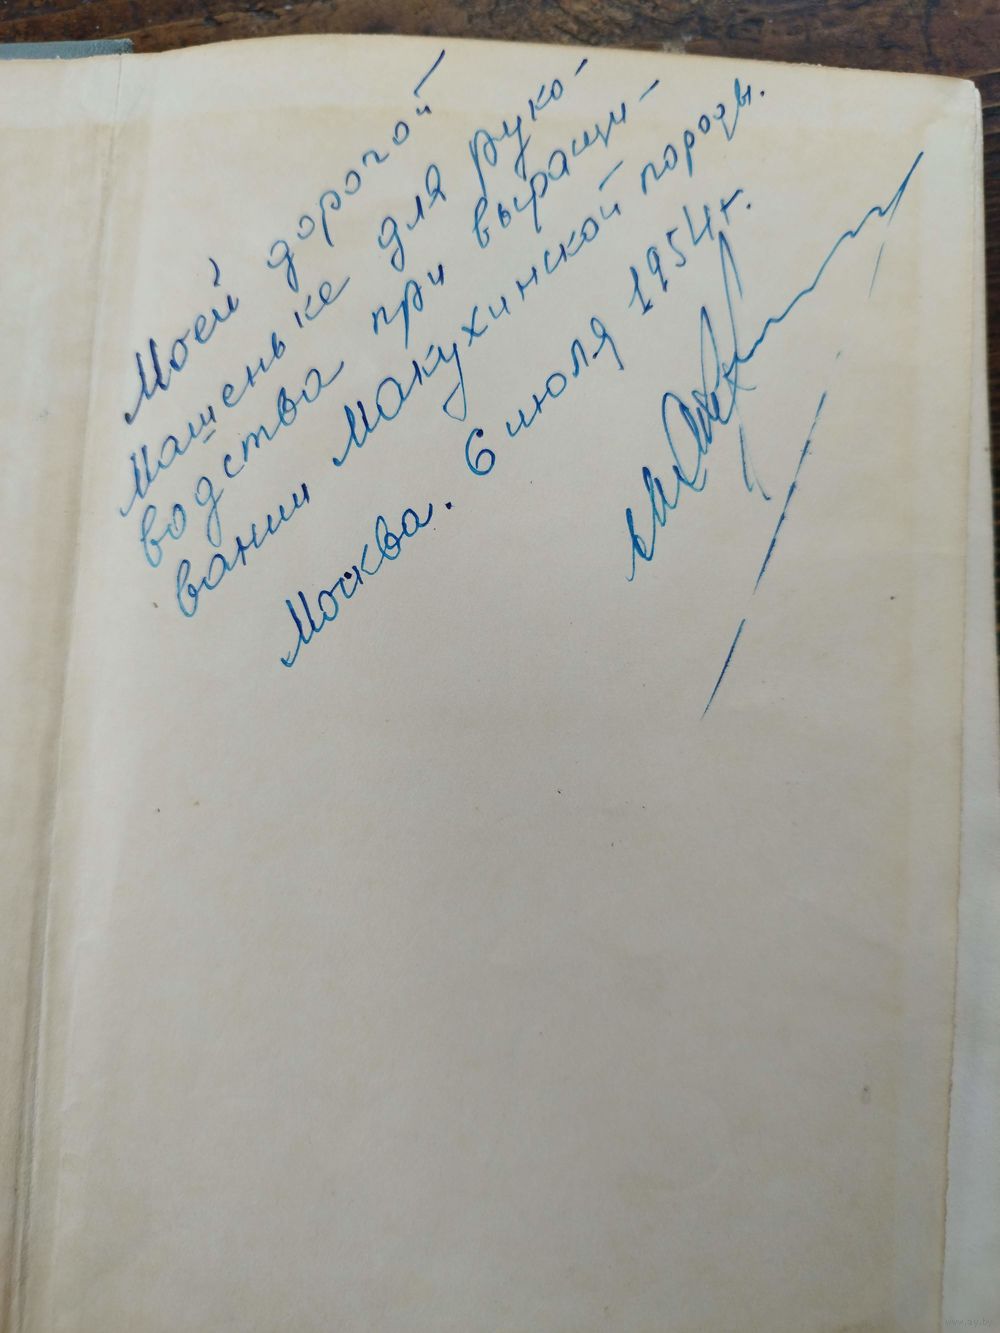 Моей дорогой
Машеньке для руко-
водства при выращи-
вании Макухинской породы.
Москва. 6 июля 1954 г.
www.ay.by